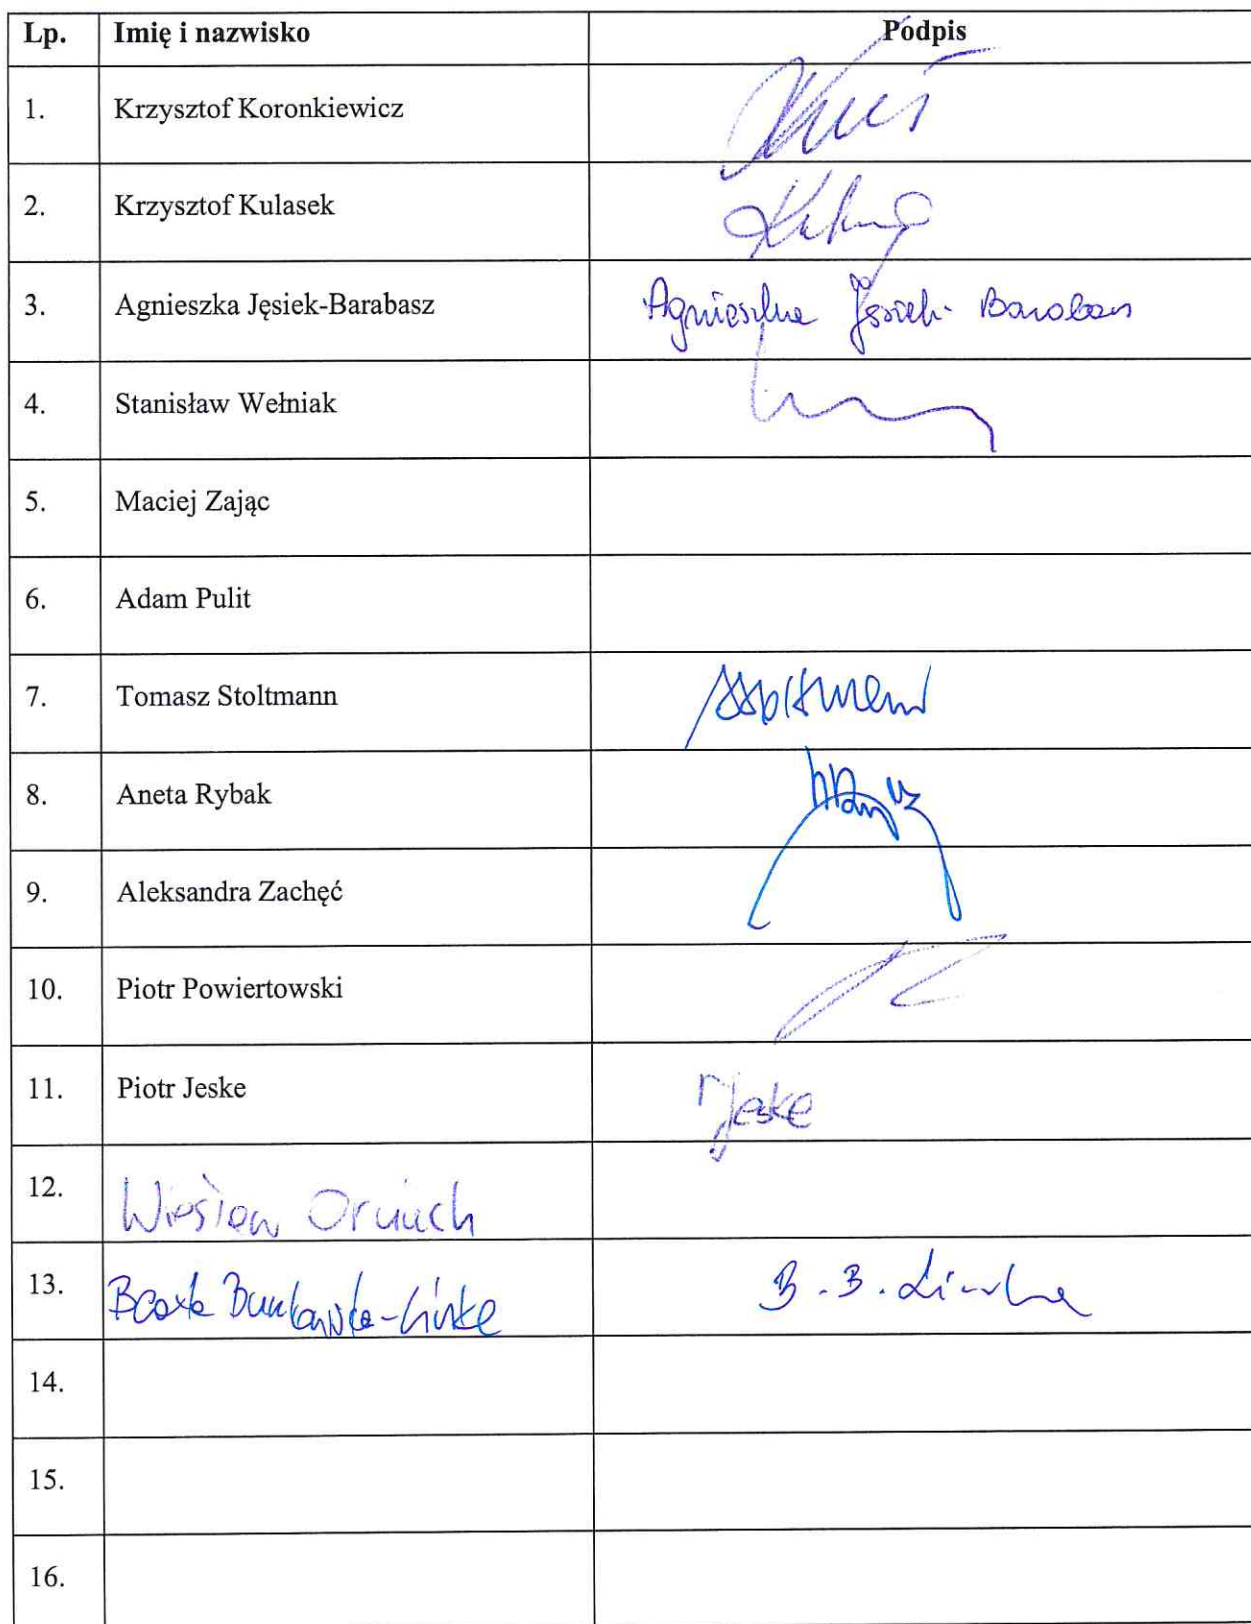 Lp. Imię i nazwisko Podpis
1. Krzysztof Koronkiewicz
2. Krzysztof Kulasek
3. Agnieszka Jęsiek-Barabasz Agnieszka Jęsiek-Barabasz
4. Stanisław Wełniak
5. Maciej Zając
6. Adam Pulit
7. Tomasz Stoltmann
8. Aneta Rybak
9. Aleksandra Zachęć
10. Piotr Powiertowski
11. Piotr Jeske PJeske
12. Wiesław
13. Beata B. B. Linke
14.
15.
16.